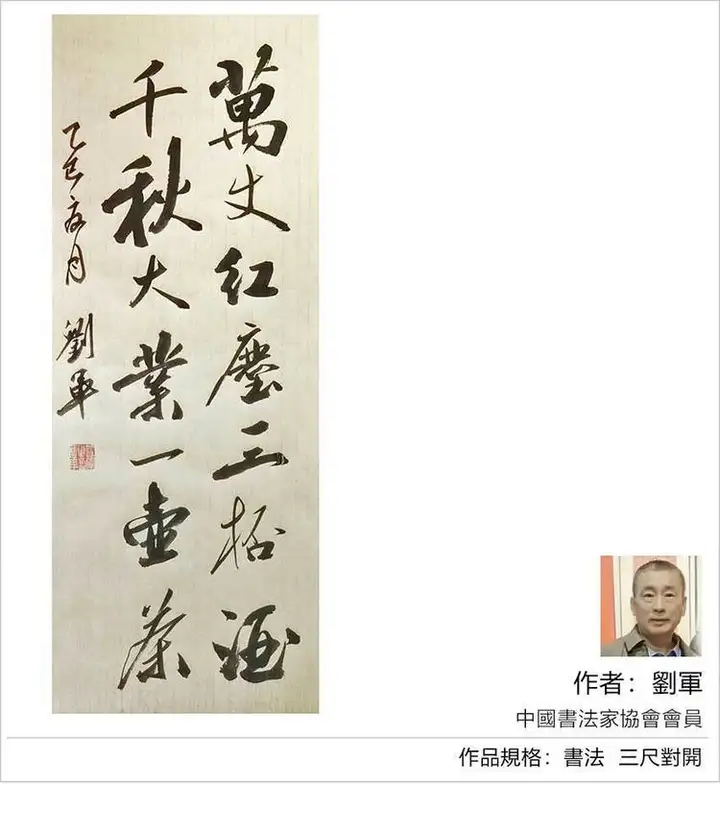 萬丈紅塵三杯酒
千秋大業一壺茶
乙巳月 劉軍
作者：劉軍
中國書法家協會會員
作品規格：書法 三尺對開